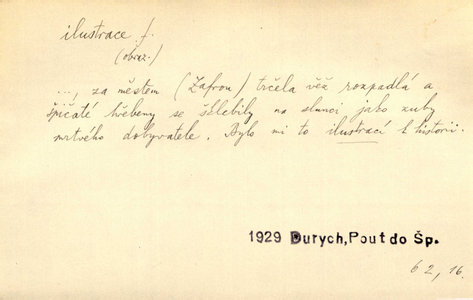 ilustrace f.
(obraz.)
..., za městem (Zafrou) trčela věž rozpadlá a
špičaté hřebeny se šklebily na slunci jako zuby
mrtvého dobyvatele. Bylo mi to ilustrací k historii.
1929 Durych, Pout do Šp.
62, 16.